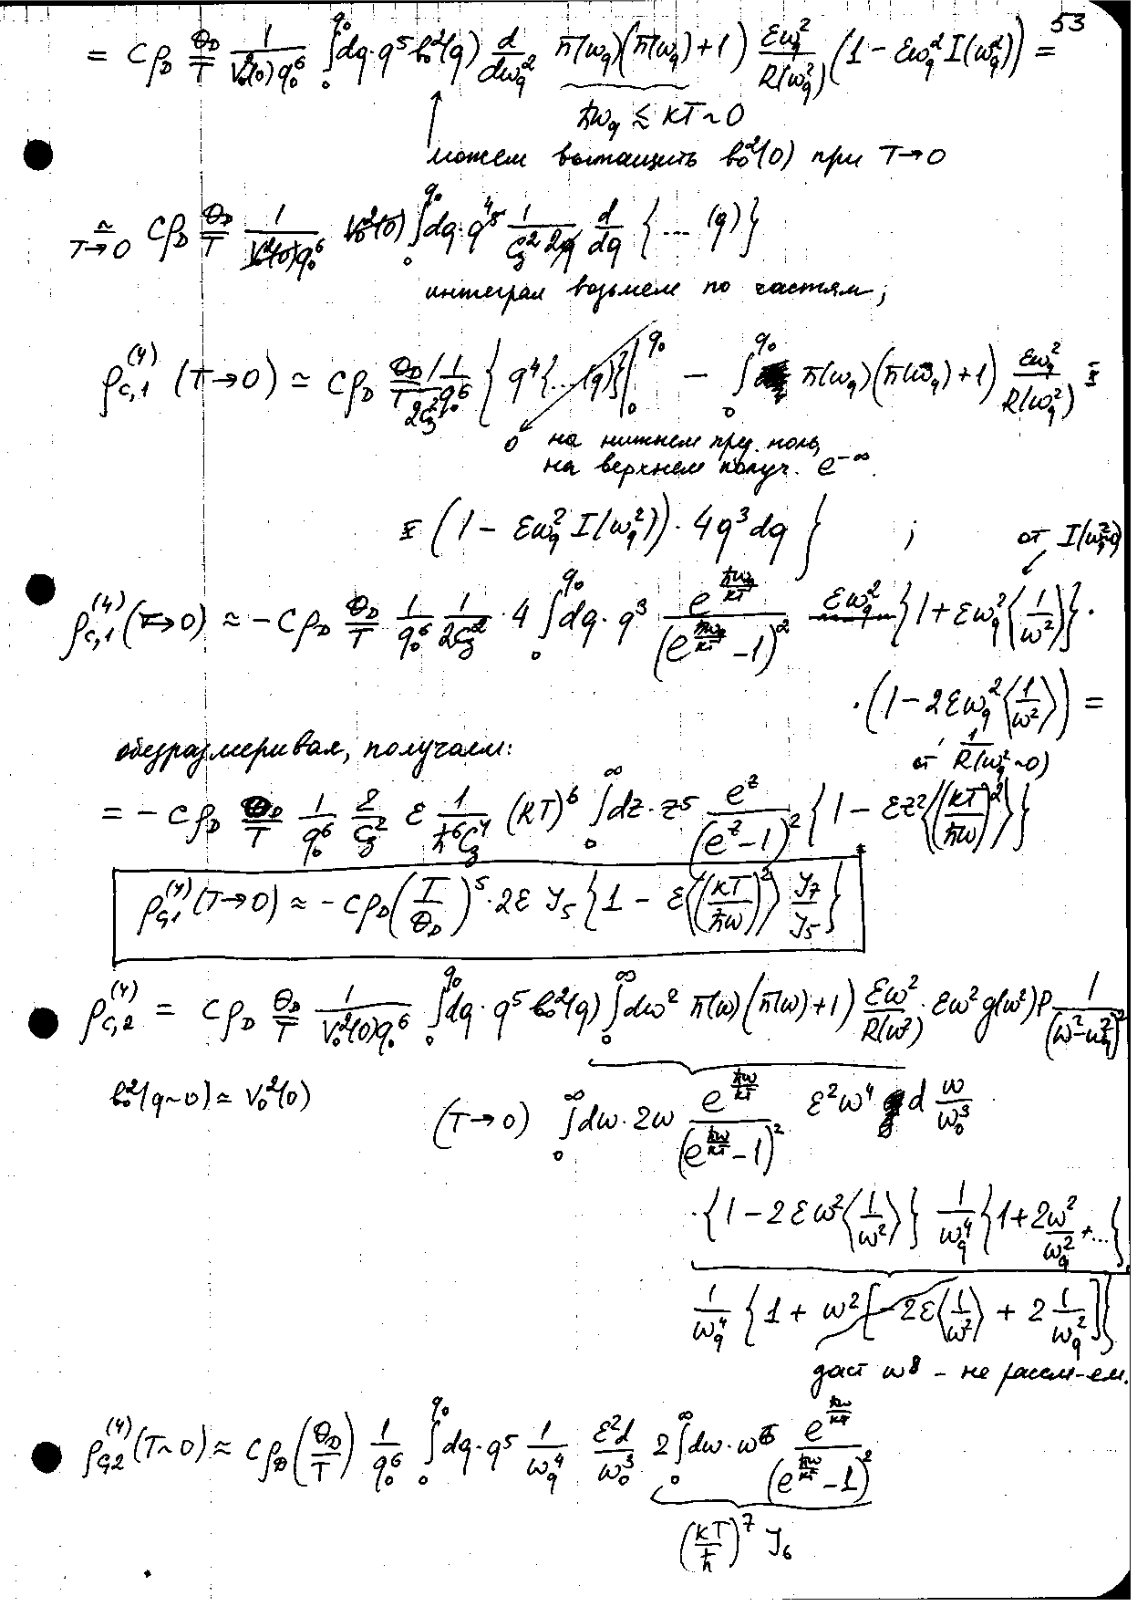 53
= cρ_D Θ_D/T 1/(V_0^2(0) q_0^6) ∫_0^{q_0} dq·q^5 b_0^2(q) d/dω_q^2 n̄(ω_q)(n̄(ω_q)+1) εω_q^2/R(ω_q^2) (1 - εω_q^2 I(ω_q^2)) =
ħω_q ≲ kT ~ 0
можем вытащить b_0^2(0) при T→0
≃_{T→0} cρ_D Θ_D/T 1/(V_0^2(0) q_0^6) V_0^2(0) ∫_0^{q_0} dq·q^4 1/(C_з^2 2q) d/dq {... (q)}
интеграл возьмем по частям;
ρ_{c,1}^{(4)} (T→0) ≃ cρ_D Θ_D/T 1/(2C_з^2) 1/q_0^6 { q^4{...(q)}|_0^{q_0} - ∫_0^{q_0} n̄(ω_q)(n̄(ω_q)+1) εω_q^2/R(ω_q^2) ×
0 на нижнем пред. ноль,
на верхнем получ. e^{-∞}.
× (1 - εω_q^2 I(ω_q^2))·4q^3 dq } ; от I(ω_q^2~0)
ρ_{c,1}^{(4)} (T→0) ≈ - cρ_D Θ_D/T 1/q_0^6 1/(2C_з^2)·4 ∫_0^{q_0} dq·q^3 e^{ħω_q/kT}/(e^{ħω_q/kT} - 1)^2 εω_q^2 {1 + εω_q^2 ⟨1/ω^2⟩}·
·(1 - 2εω_q^2 ⟨1/ω^2⟩) =
обезразмеривая, получаем: от 1/R(ω_q^2~0)
= - cρ_D Θ_D/T 1/q_0^6 2/C_з^2 ε 1/(ħ^6 C_з^4) (kT)^6 ∫_0^∞ dz·z^5 e^z/(e^z - 1)^2 {1 - εz^2 ⟨(kT/ħω)^2⟩}
ρ_{c,1}^{(4)} (T→0) ≈ - cρ_D (T/Θ_D)^5·2ε J_5 {1 - ε⟨(kT/ħω)^2⟩ J_7/J_5}
ρ_{c,2}^{(4)} = cρ_D Θ_D/T 1/(V_0^2(0) q_0^6) ∫_0^{q_0} dq·q^5 b_0^2(q) ∫_0^∞ dω^2 n̄(ω)(n̄(ω)+1) εω^2/R(ω^2)·εω^2 g(ω^2) P 1/(ω^2 - ω_q^2)^2
b_0^2(q~0) ≈ V_0^2(0) (T→0) ∫_0^∞ dω·2ω e^{ħω/kT}/(e^{ħω/kT} - 1)^2 ε^2ω^4 d ω/ω_0^3
·{1 - 2εω^2 ⟨1/ω^2⟩} 1/ω_q^4 {1 + 2ω^2/ω_q^2 + ...}
1/ω_q^4 {1 + ω^2 [-2ε⟨1/ω^2⟩ + 2 1/ω_q^2]}
даст ω^8 - не рассм-ем.
ρ_{c,2}^{(4)} (T~0) ≈ cρ_D (Θ_D/T) 1/q_0^6 ∫_0^{q_0} dq·q^5 1/ω_q^4 ε^2 d/ω_0^3 2∫_0^∞ dω·ω^6 e^{ħω/kT}/(e^{ħω/kT} - 1)^2
(kT/ħ)^7 J_6